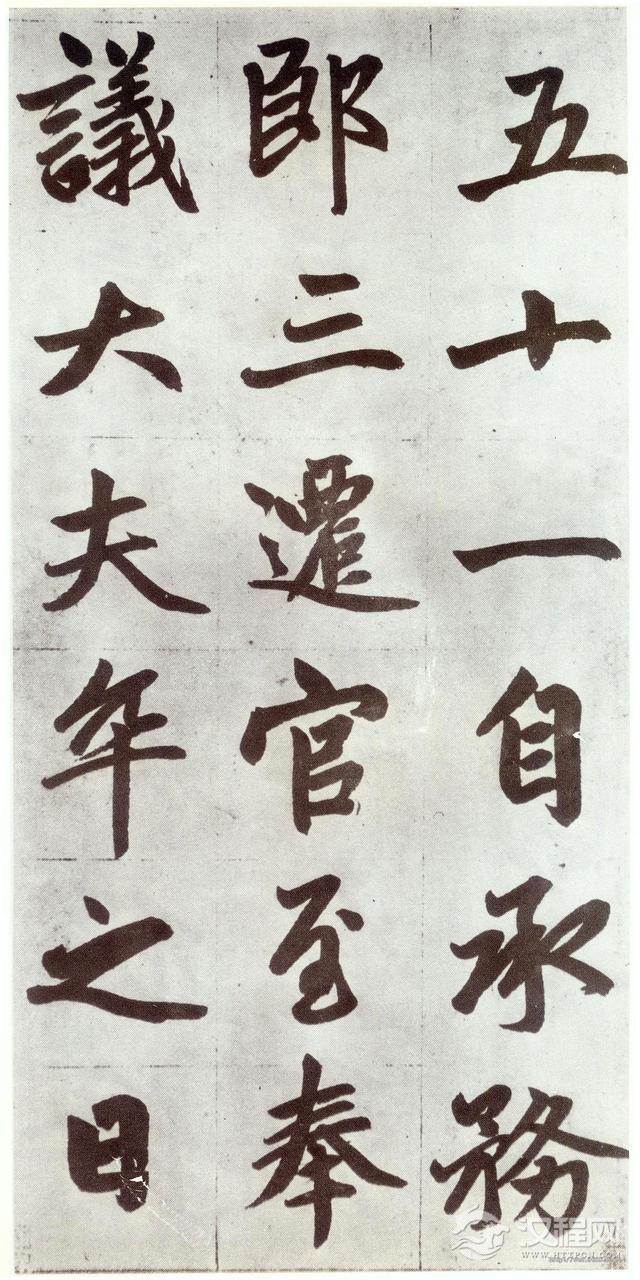 五十一自承務
郎三遷官至奉
議大夫卒之日
汉程网
WWW.HTTPCN.COM